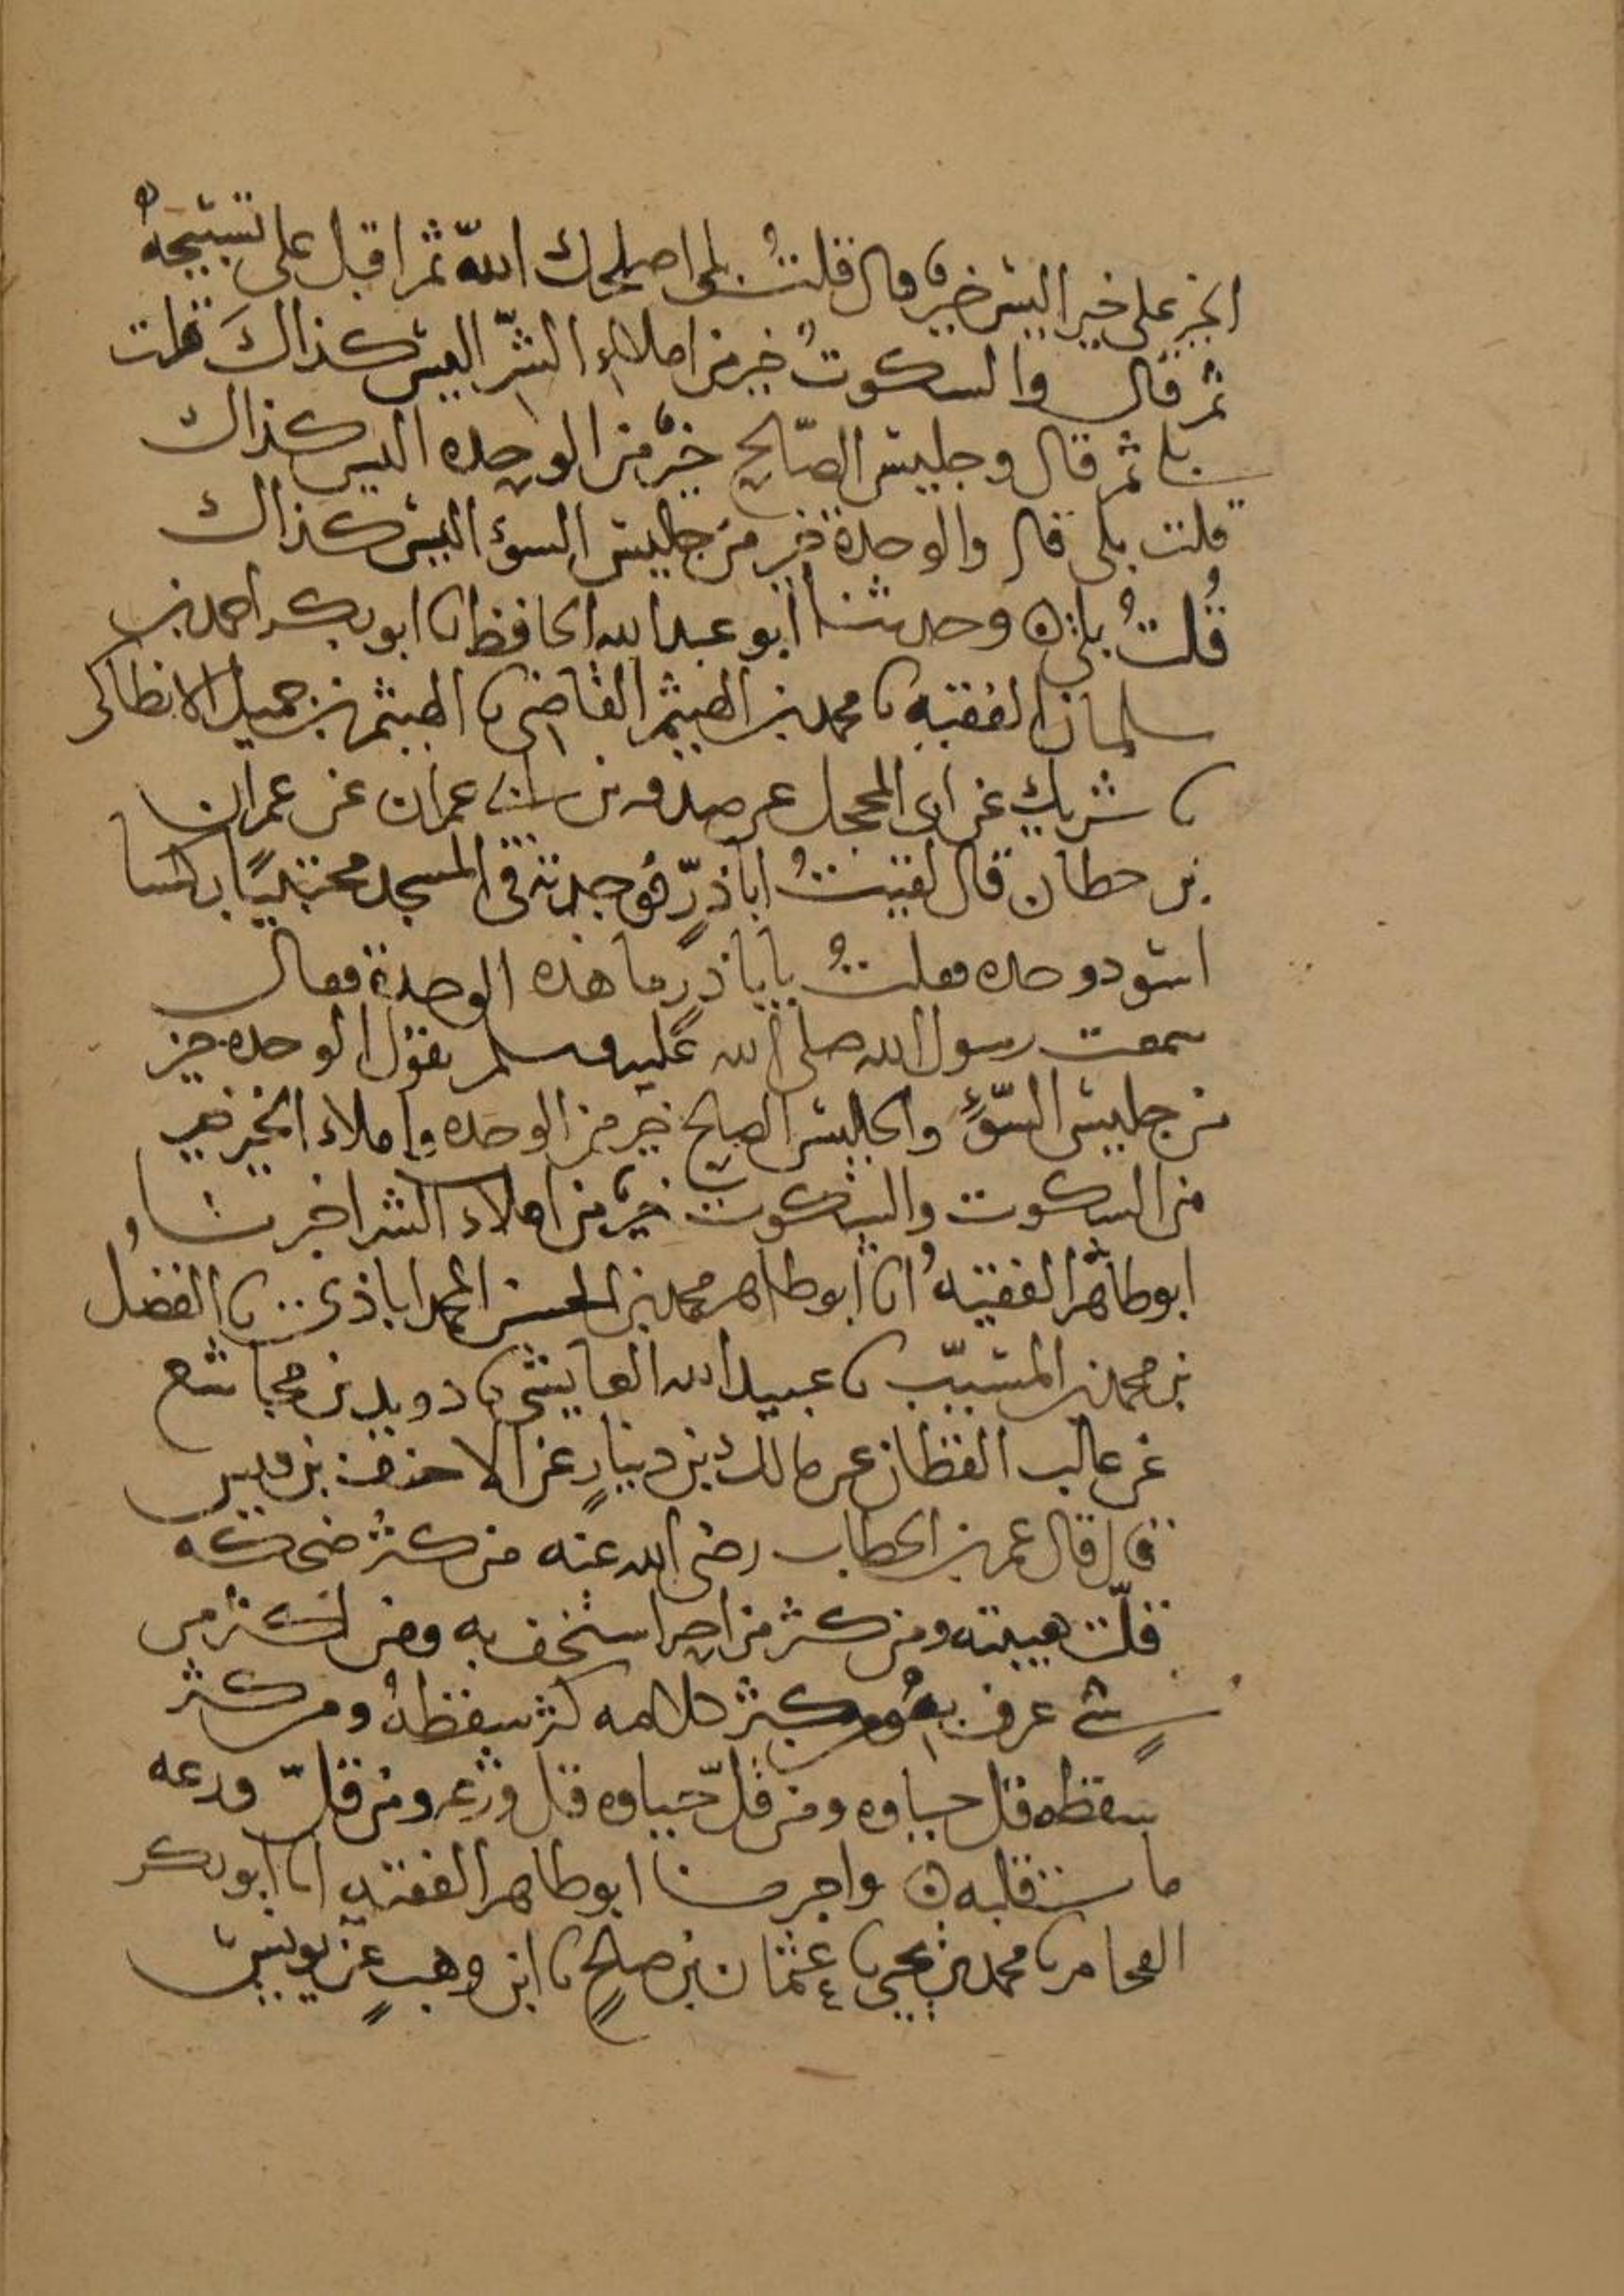 الخير على خير اليس خير قال قلت بلى اصلحك الله ثم اقبل على تسبيحه
ثم قال والسكوت خير من املاء الشر اليس كذاك قلت
بلى ثم قال وجليس الصالح خير من الوحده اليس كذاك
قلت بلى قال والوحدة خير من جليس السوء اليس كذاك
قلت بلى ه وحدثنا ابو عبد الله الحافظ نا ابو بكر احمد بن
سلمان الفقيه نا محمد بن الهيثم القاضي نا الهيثم بن جميل الانطاكي
نا شريك عن ابى المحجل عن صدقه بن ابى عمران عن عمران
بن حطان قال لقيت اباذر فوجدته في المسجد محتبيا بكسا
اسود وحده فقلت يا باذر ما هذه الوحدة فقال
سمعت رسول الله صلى الله عليه وسلم يقول الوحده خير
من جليس السوء والجليس الصالح خير من الوحده واملاء الخير خير
من السكوت والسكوت خير من املاء الشر اخبرنا
ابو طاهر الفقيه انا ابو طاهر محمد بن الحسن المحمداباذى نا الفضل
بن محمد بن المسيب نا عبيد الله العايشي نا دويد بن مجاشع
عن غالب القطان عن مالك بن دينار عن الاحنف بن قيس
قال قال عمر بن الخطاب رضى الله عنه من كثر ضحكه
قلت هيبته ومن كثر مزاحه استخف به ومن اكثر من
شي عرف به ومن كثر كلامه كثر سقطه ومن كثر
سقطه قل حياوه ومن قل حياوه قل ورعه ومن قل ورعه
مات قلبه ه واخبرنا ابو طاهر الفقيه انا ابو بكر
الفحام نا محمد بن يحيى نا عثمان بن صلح نا ابن وهب عن يونس